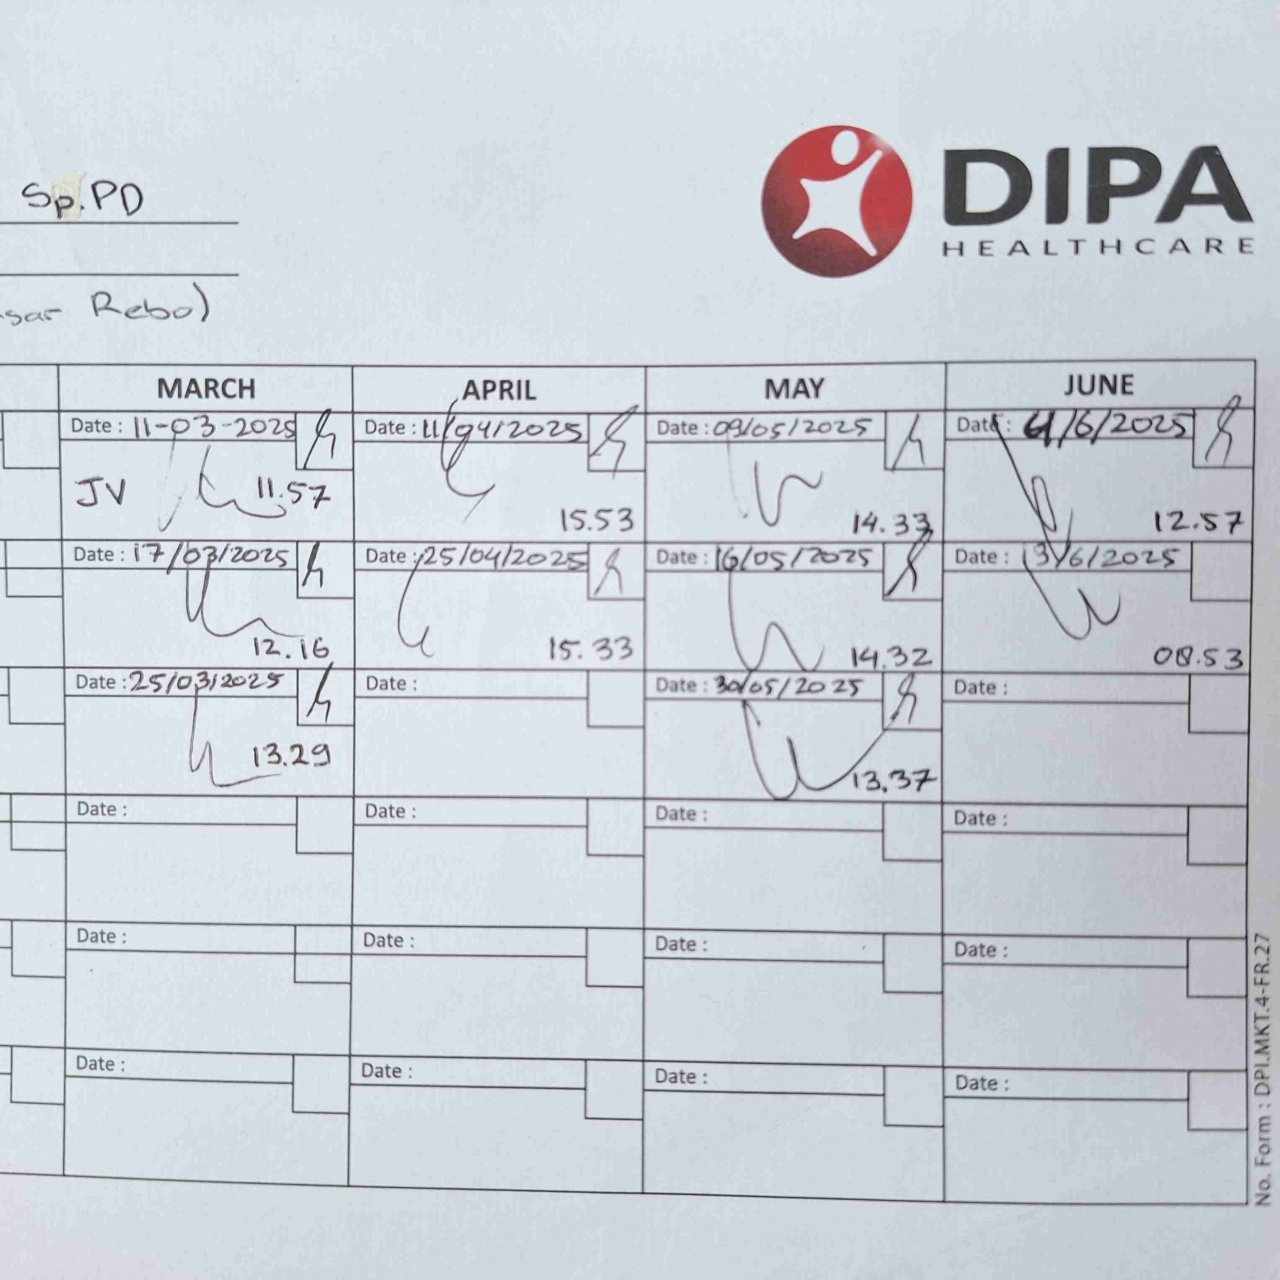 Sp.PD
DIPA
HEALTHCARE
Rebo)
MARCH APRIL MAY JUNE
Date : 11-03-2025 Date : 11/04/2025 Date : 09/05/2025 Date : 4/6/2025
JV 11.57 15.53 14.33 12.57
Date : 17/03/2025 Date : 25/04/2025 Date : 16/05/2025 Date : 13/6/2025
12.16 15.33 14.32 08.53
Date : 25/03/2025 Date : Date : 30/05/2025 Date :
13.29 13.37
Date : Date : Date : Date :
Date : Date : Date : Date :
Date : Date : Date : Date :
No. Form : DPI.MKT.4-FR.27